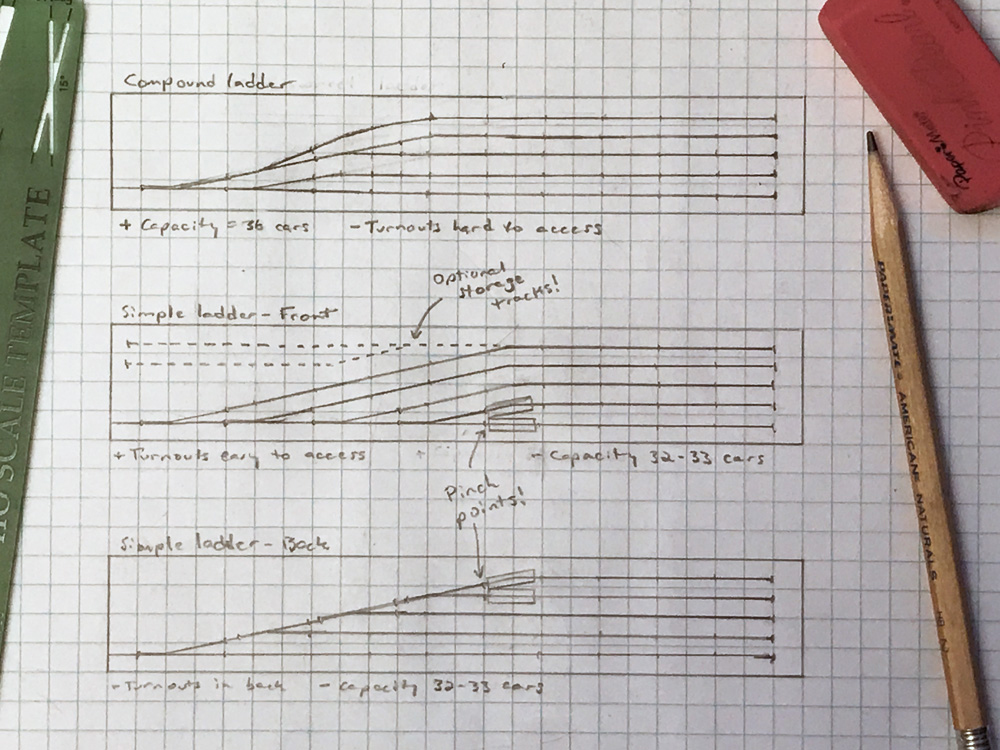 Compound ladder
+ Capacity = 36 cars - Turnouts hard to access
Optional
storage
tracks!
Simple ladder - Front
+ Turnouts easy to access - Capacity 32-33 cars
Pinch
points!
Simple ladder - Back
- Turnouts in back - capacity 32-33 cars
HO SCALE TEMPLATE
15°
Paper Mate
PAPERMATE® AMERICAN® NATURALS HB 2